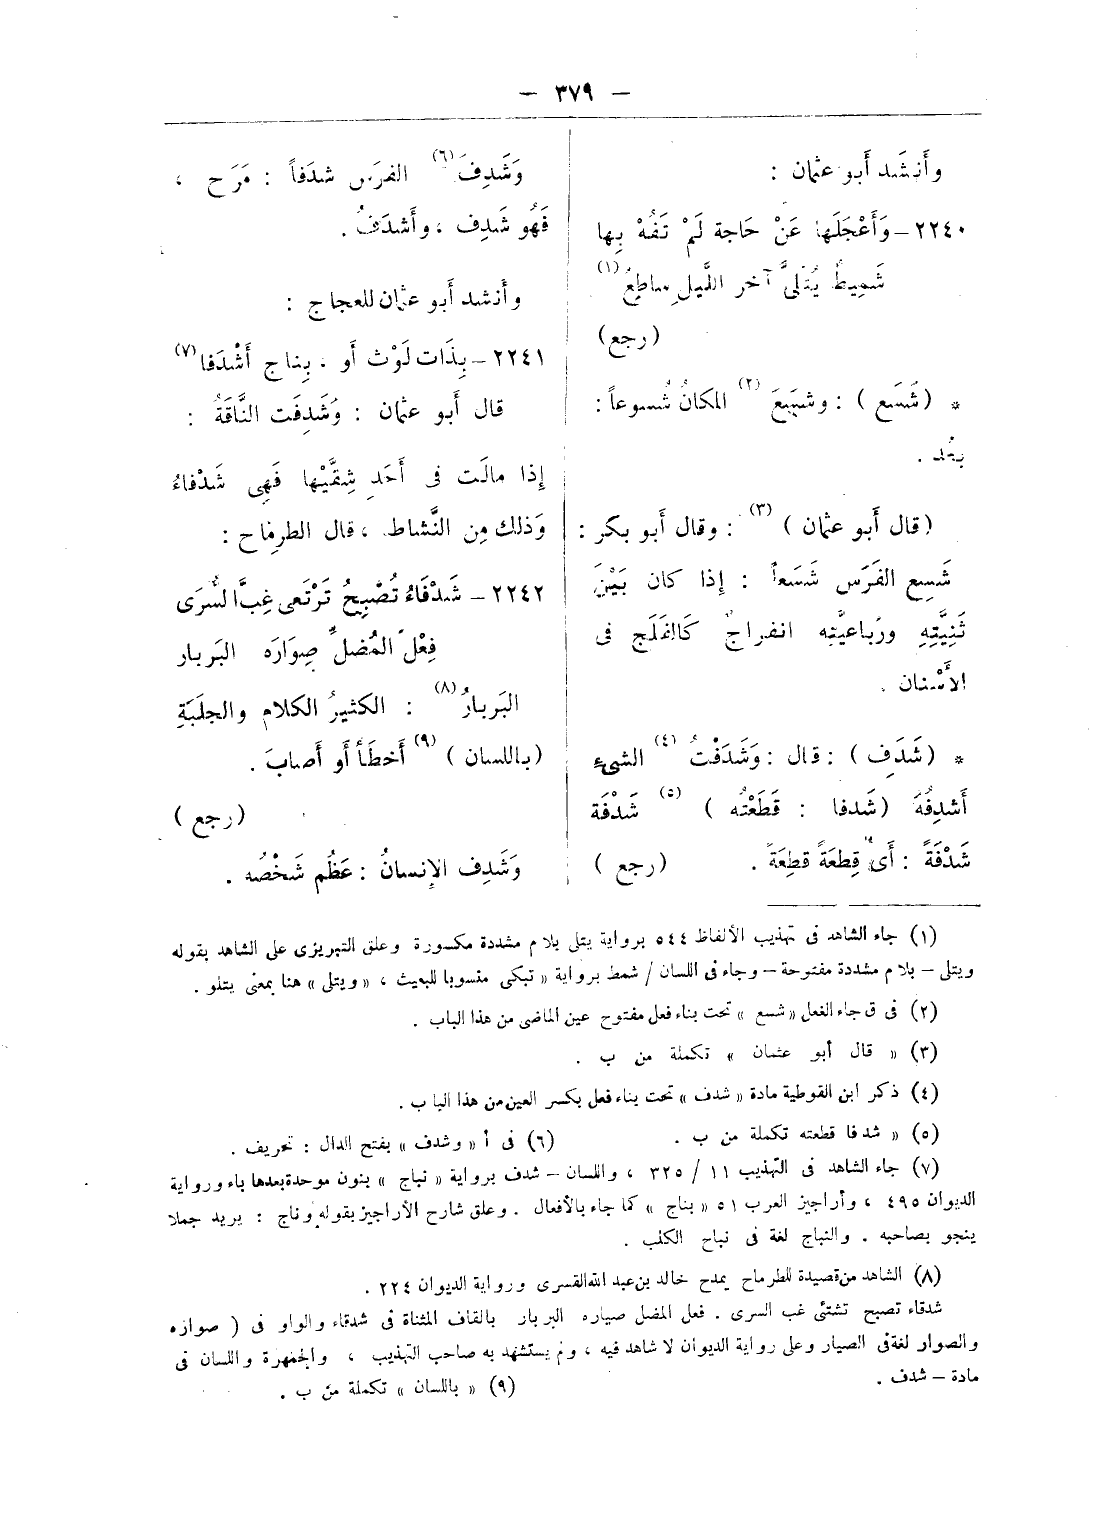 — ٣٧٩ —
وأَنشَد أَبو عثمان :
٢٢٤٠ – وَأَعْجَلَها عَنْ حَاجة لَمْ تَفُهْ بِها
شَمِيطٌ يُتَلَّى آخر اللَّيلِ ساطِعُ (١)
(رجع)
* (شَسَع) : وشَسَعَ (٢) المكانُ شُسوعاً :
بعُد .
(قال أَبو عثمان) (٣) : وقال أَبو بكر :
شَسِع الفَرَس شَسَعاً : إذا كان بَيْنَ
ثَنِيَّتِهِ ورَباعيَّته انفراجٌ كَالفَلَج فى
الأَسْنان .
* (شَدَف) : قال : وَشَدَفْتُ (٤) الشىءَ
أَشدِفُهُ (شَدفا : قَطَعْتُه) (٥) شَدْفَة
شَدْفَةً : أَىْ قِطعَةً قطِعَةً . (رجع)
وَشَدِفَ (٦) الفرَس شدَفاً : مَرَح ،
فَهُو شَدِف ، وأَشدَفُ .
وأَنشد أَبو عثمان للعجاج :
٢٢٤١ – بِذَات لَوْث أَو ، بِناج أَشْدَفا (٧)
قال أَبو عثمان : وَشَدِفَت النَّاقَةُ :
إذا مالَت فى أَحَدِ شِقَّيْها فَهِى شَدْفاءُ
وَذلك مِن النَّشاط ، قال الطرماح :
٢٢٤٢ – شَدْفَاءُ تُصْبِحُ تَرْتَعى غِبَّ السُّرَى
فِعْلَ المُضلِّ صِوَارَه البَربار
البَربارُ (٨) : الكثيرُ الكلام والجلَبَةِ
(باللسان) (٩) أَخطَأَ أَو أَصابَ .
(رجع)
وَشَدِف الإِنسانُ : عَظُم شَخْصُه .
(١) جاء الشاهد فى تهذيب الألفاظ ٥٤٤ برواية يتلى بلام مشددة مكسورة وعلق التبريزى على الشاهد بقوله
ويتلى – بلام مشددة مفتوحة – وجاء فى اللسان / شمط برواية « تبكى منسوبا للبعيث ، « ويتلى » هنا بمعنى يتلو .
(٢) فى ق جاء الفعل « شسع » تحت بناء فعل مفتوح عين الماضى من هذا الباب .
(٣) « قال أبو عثمان » تكملة من ب .
(٤) ذكر ابن القوطية مادة « شدف » تحت بناء فعل بكسر العين من هذا الباب .
(٥) « شدفا قطعته تكملة من ب . (٦) فى أ « وشدف » بفتح الدال : تحريف .
(٧) جاء الشاهد فى التهذيب ١١ / ٣٢٥ ، واللسان – شدف برواية « نباج » بنون موحدة بعدها باء ورواية
الديوان ٤٩٥ ، وأراجيز العرب ٥١ « بناج » كما جاء بالأفعال . وعلق شارح الأراجيز بقوله وناج : يريد جملا
ينجو بصاحبه . والنباج لغة فى نباح الكلب .
(٨) الشاهد من قصيدة للطرماح يمدح خالد بن عبد الله القسرى ورواية الديوان ٢٢٤ .
شدقاء تصبح تشتئى غب السرى . فعل المضل صياره البربار بالقاف المثناة فى شدقاء والواو فى ( صواره
والصوار لغة فى الصيار وعلى رواية الديوان لا شاهد فيه ، ولم يستشهد به صاحب التهذيب ، والجمهرة واللسان فى
مادة – شدف . (٩) « باللسان » تكملة من ب .